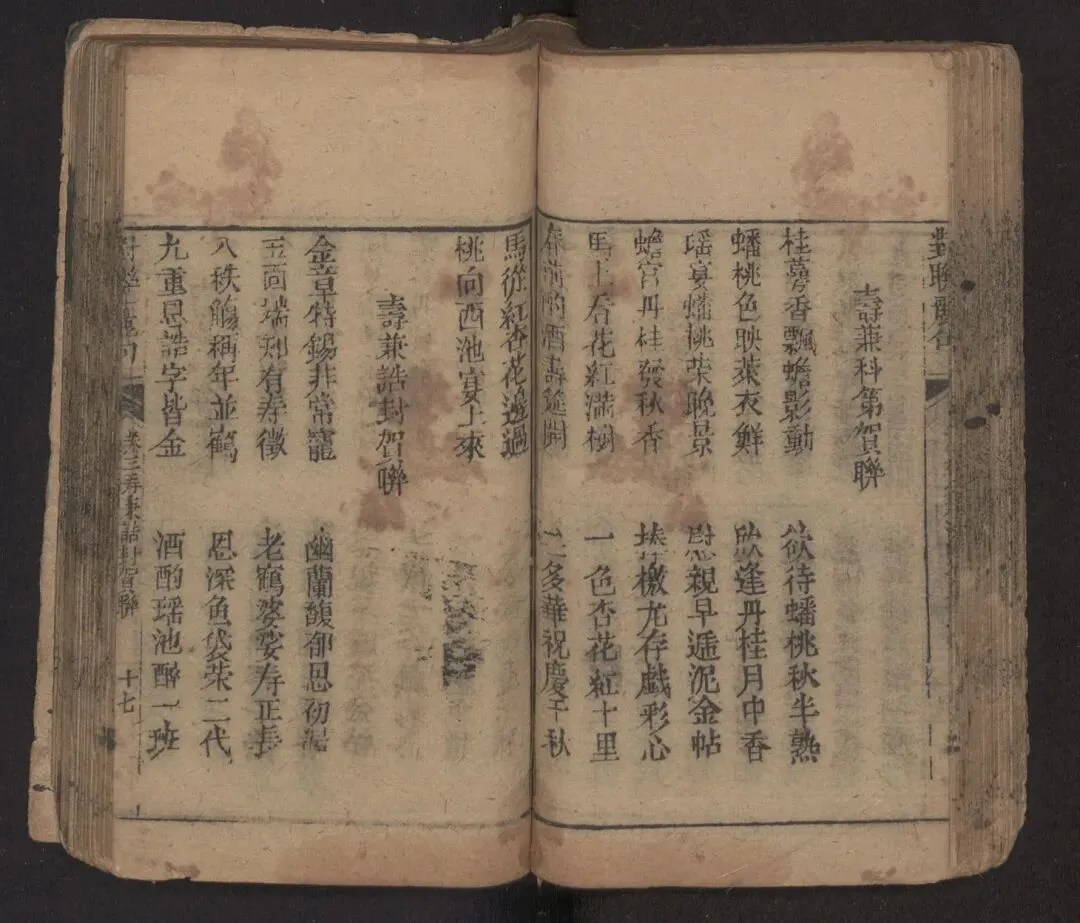 對聯
壽兼科第賀聯
桂蕚香飄蟾影動
欲待蟠桃秋半熟
蟠桃色映萊衣鮮
欣逢丹桂月中香
瑶宴蟠桃荣晚景
慰親早遞泥金帖
蟾宫丹桂發秋香
捧檄尤存戯彩心
馬上看花紅滿樹
一色杏花紅十里
春前酌酒壽筵開
多華祝慶千秋
馬從紅杏花邊過
桃向西池宴上來
壽兼誥封賀聯
金章特錫非常寵
幽蘭馥郁恩初渥
瑞 有寿徵
老鶴婆娑寿正長
八秩觴稱年並鶴
恩深魚袋荣二代
九重恩誥字皆金
酒酌瑶池醉一班
卷三寿兼誥封賀聯
十七